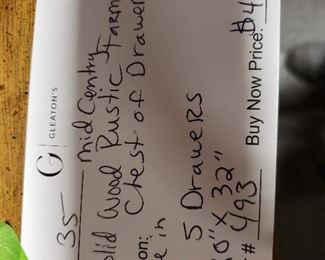 G
GLEATON'S
35
mid Century
Solid Wood Rustic Farm
Chest of Drawer
on:
e in
5 Drawers
0" X 32"
# 493
Buy Now Price: $4